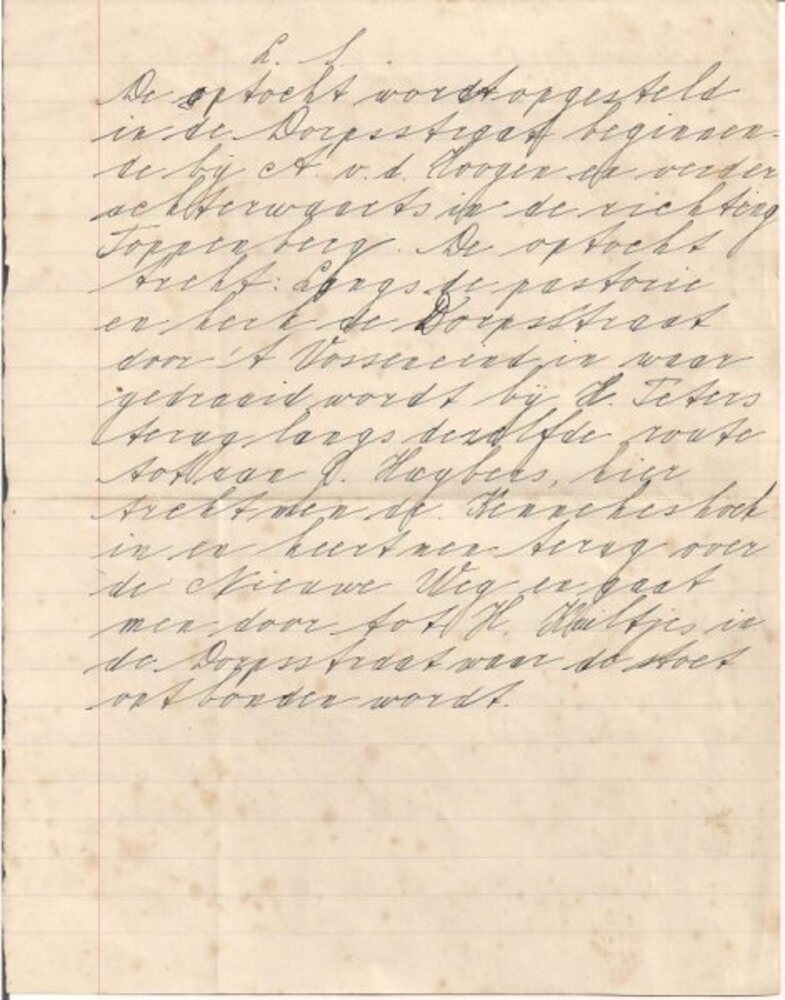 L. S.
De optocht wordt opgesteld
in de Dorpsstraat beginnen-
de bij A. v.d. Hoogen en verder
achterwaarts in de richting
Toppenberg. De optocht
trekt: Langs de pastorie
en kerk de Dorpsstraat
door 't Vosseneind in waar
gedraaid wordt bij H. Peters
terug langs dezelfde route
tot aan Huybers, hier
trekt men de Kennekeshoek
in en keert men terug over
de Nieuwe Weg en gaat
men door tot H. in
de Dorpsstraat waar de stoet
ontbonden wordt.